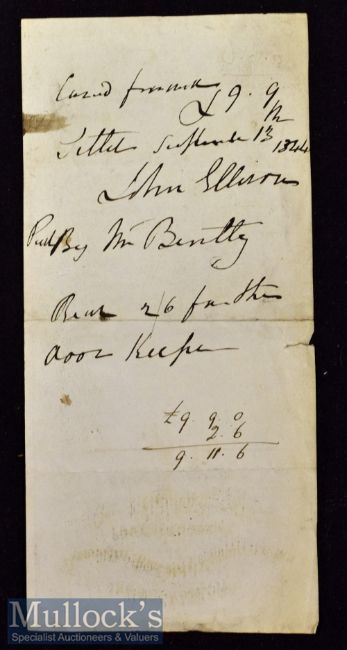 Caried forward
£9. 9
Settled September 13 1844
John Ellison
Paid By Mr Bentley
Beer 2/6 for the
door Keeper
£9. 9. 0
2. 6
9. 11. 6
Mullock's
Specialist Auctioneers & Valuers